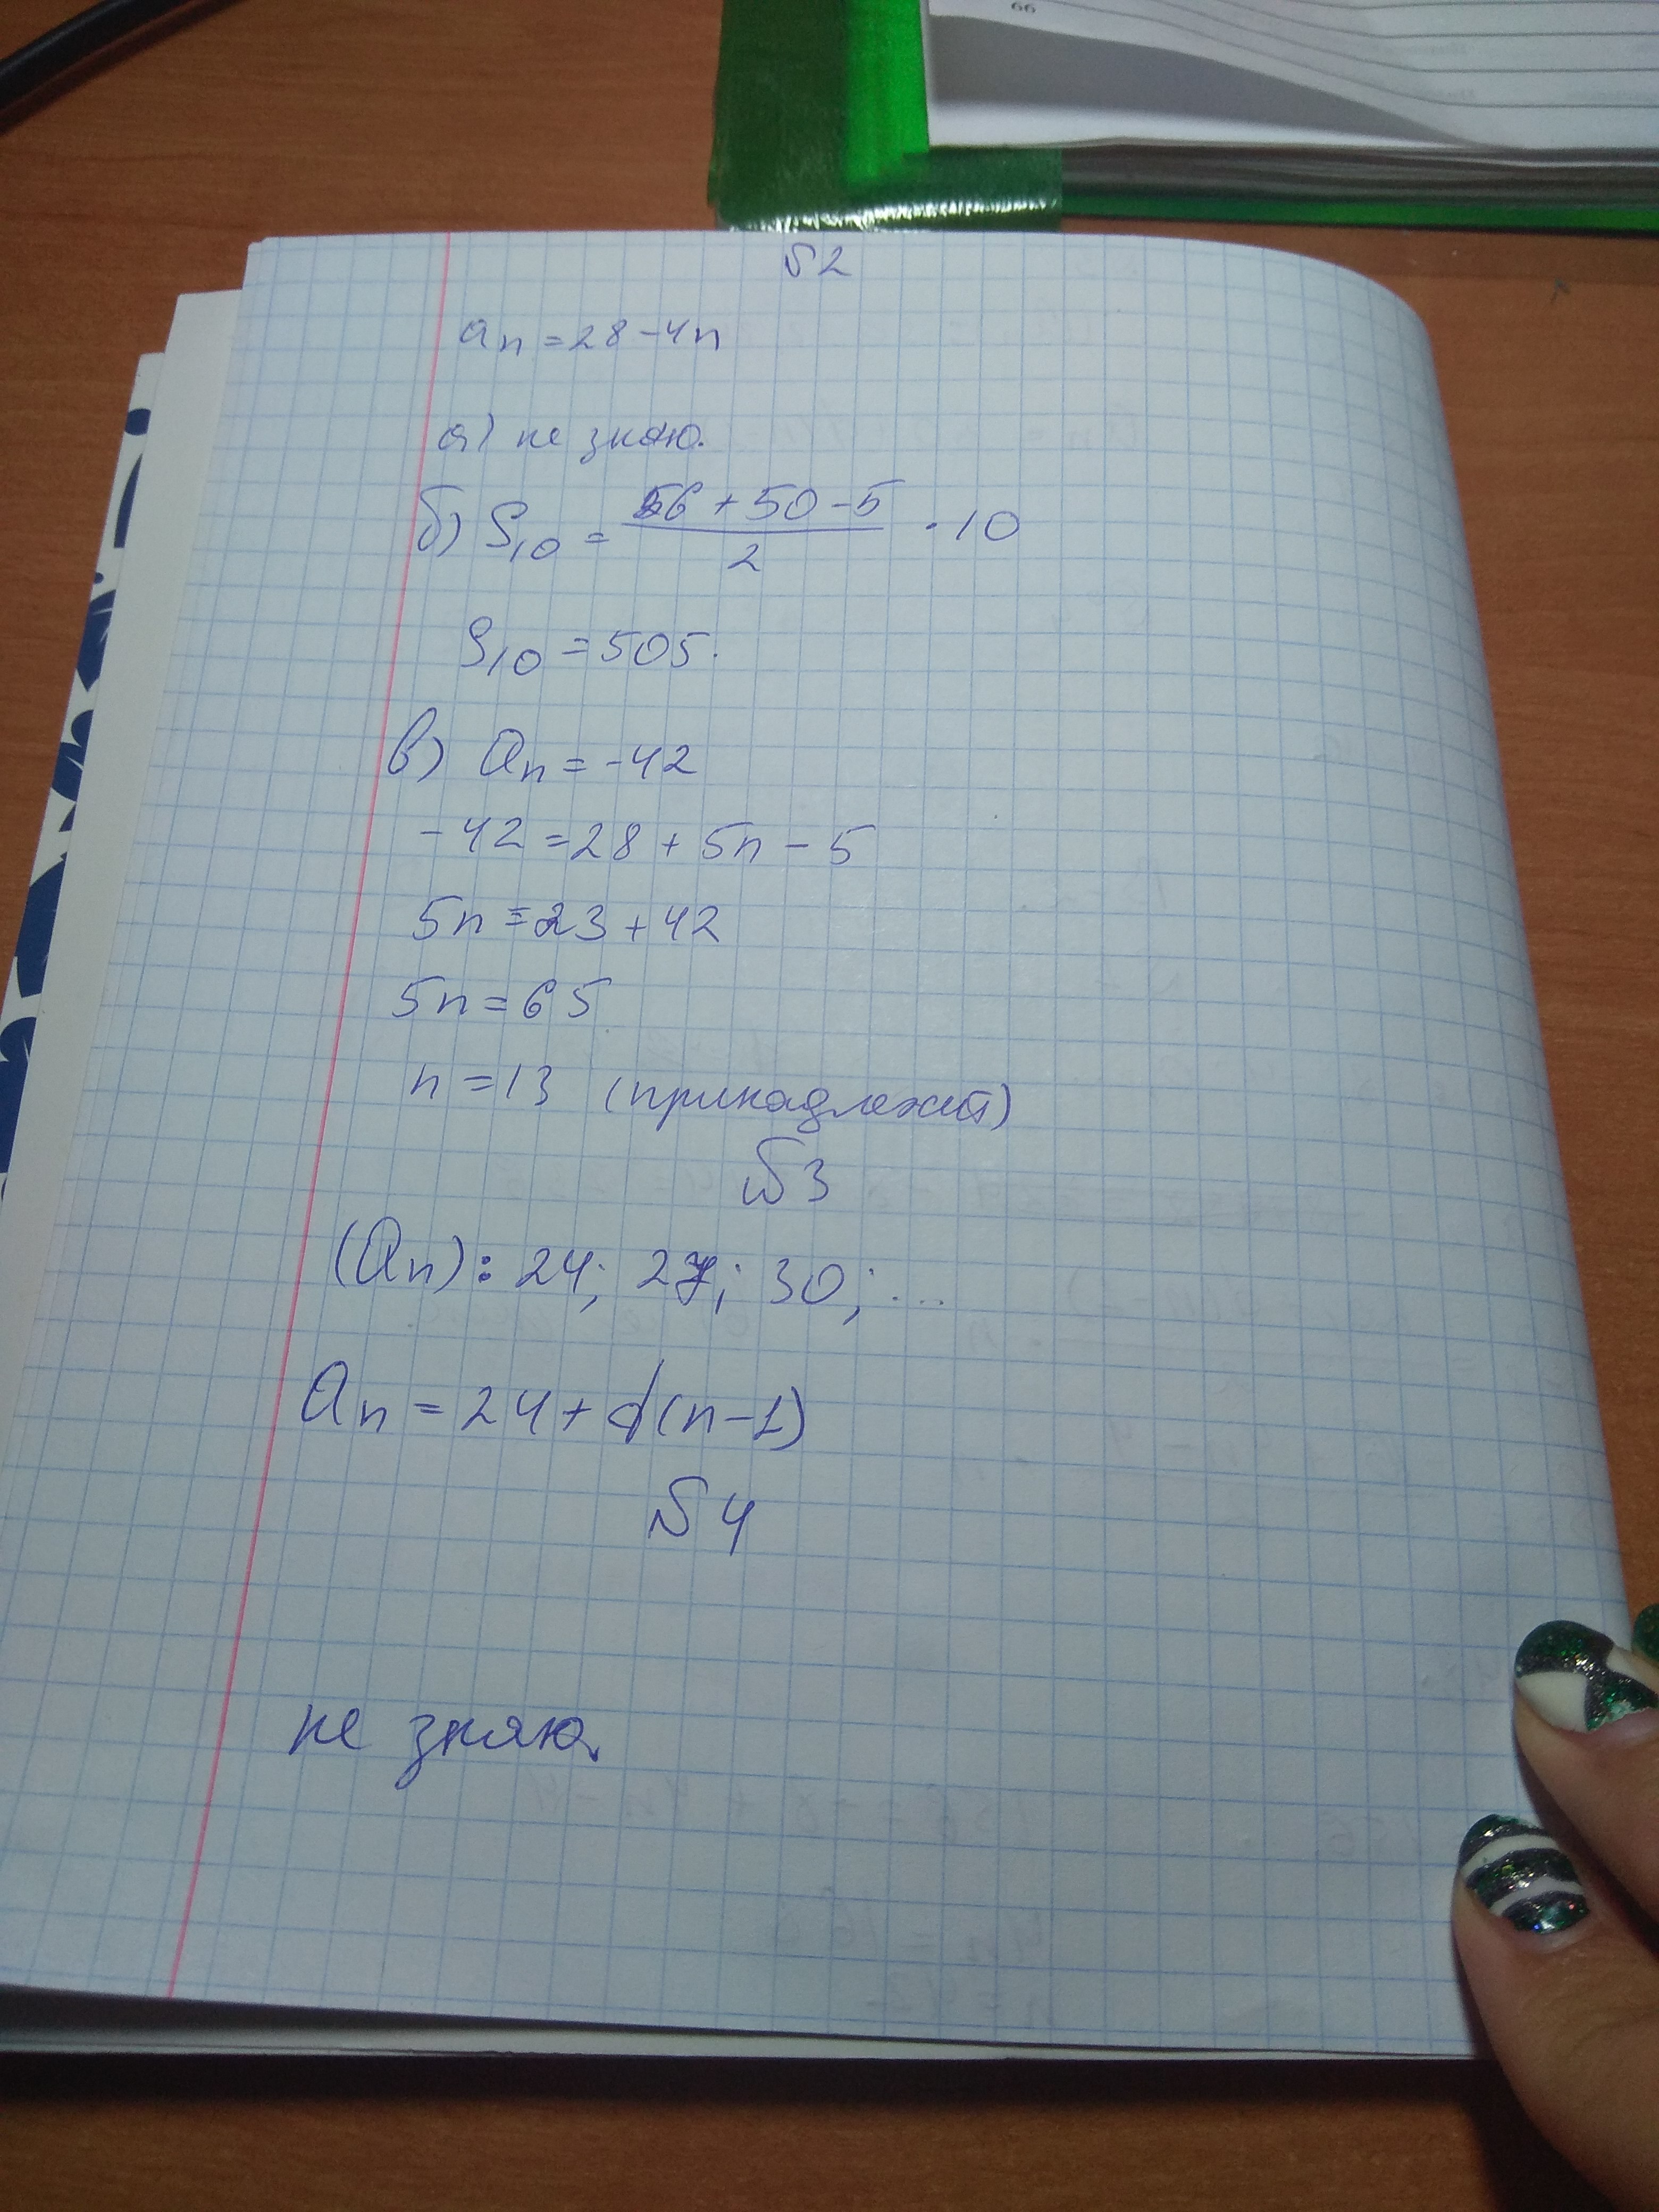 66
№2
an = 28 - 4n
а) не знаю.
б) S10 = (56 + 50 - 5)/2 · 10
S10 = 505.
в) an = -42
-42 = 28 + 5n - 5
5n = 23 + 42
5n = 65
n = 13 (принадлежит)
№3
(an): 24; 27; 30; ...
an = 24 + d(n-1)
№4
не знаю.